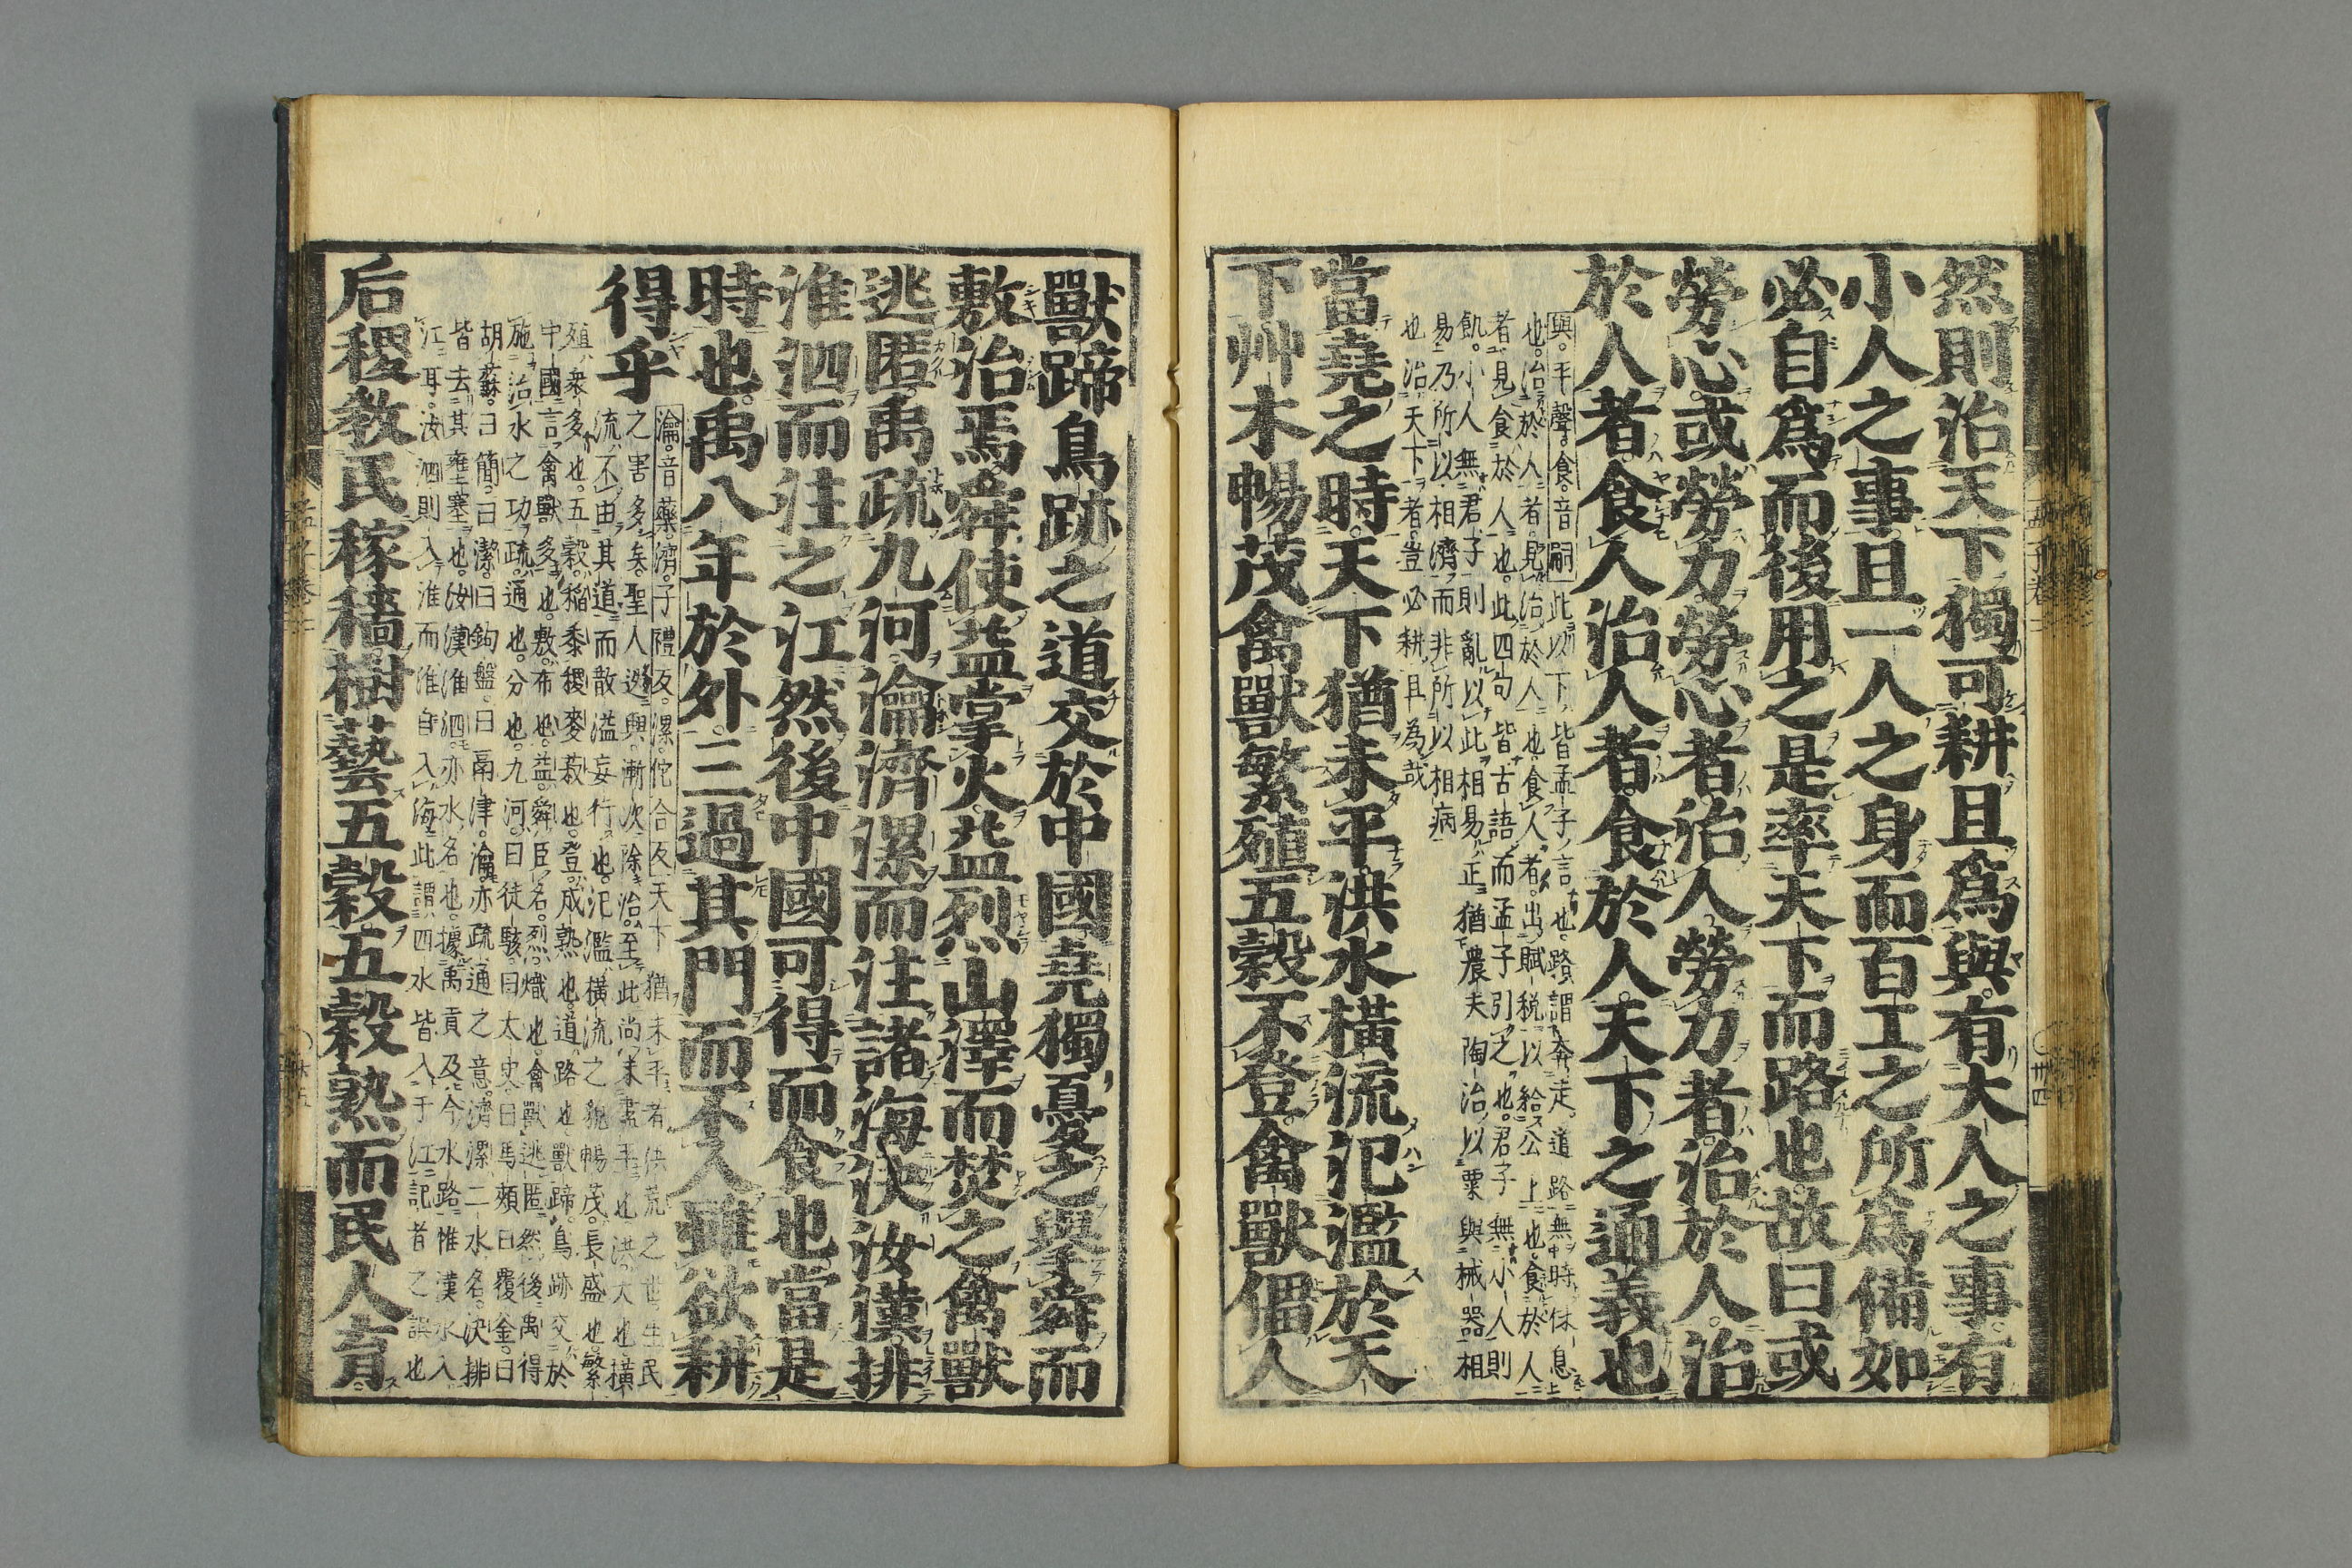 然則治天下獨可耕且爲與。有大人之事。有
小人之事。且一人之身而百工之所爲備如
必自爲而後用之是率天下而路也。故曰或
勞心。或勞力。勞心者治人。勞力者治於人。治
於人者食人。治人者食於人。天下之通義也
與。平聲。食。音嗣 此以下皆孟子言也。路謂奔走。道路無時休息
也。治於人者。見治於人也。食人者。出賦税以給公上也。食於人
者。見食於人也。此四句皆古語而孟子引之也。君子無小人則
飢。小人無君子則亂。以此相易。正猶農夫陶冶以粟與械器相
易乃所以相濟而非所以相病
也治天下者。豈必耕且為哉
當堯之時。天下猶未平。洪水橫流氾濫於天
下艸木暢茂禽獸繁殖五穀不登。禽獸偪人
獸蹄鳥跡之道交於中國堯獨憂之舉舜而
敷治焉。舜使益掌火。益烈山澤而焚之。禽獸
逃匿。禹疏九河。瀹濟漯而注諸海決汝漢。排
淮泗而注之江。然後中國可得而食也。當是
時也。禹八年於外。三過其門而不入雖欲耕
得乎
瀹。音藥。濟。子禮反。漯。佗合反 天下猶未平者洪荒之世生民
之害多矣。聖人迭興漸次除治。至此尚未盡平也洪大也。橫
流不由其道而散溢妄行也。氾濫橫流之貌暢茂。長盛也。繁
殖。衆多也。五穀。稲黍稷麥菽也。登。成熟也。道。路也。獸蹄。鳥跡交於
中國言禽獸多也。敷。布也。益。舜臣名。烈。熾也。禽獸逃匿然後禹得
施治水之功。疏。通也。分也。九河。曰徒駭。曰太史。曰馬頰曰覆釜。曰
胡蘇。曰簡。曰潔。曰鉤盤。曰鬲津。瀹亦疏通之意。濟漯二水名。決排
皆去其壅塞也。汝漢淮泗。亦水名也。據禹貢及今水路惟漢水入
江耳。汝泗則入淮而淮自入海此謂四水皆入于江記者之誤也
后稷教民稼穡樹藝五穀五穀熟而民人育。